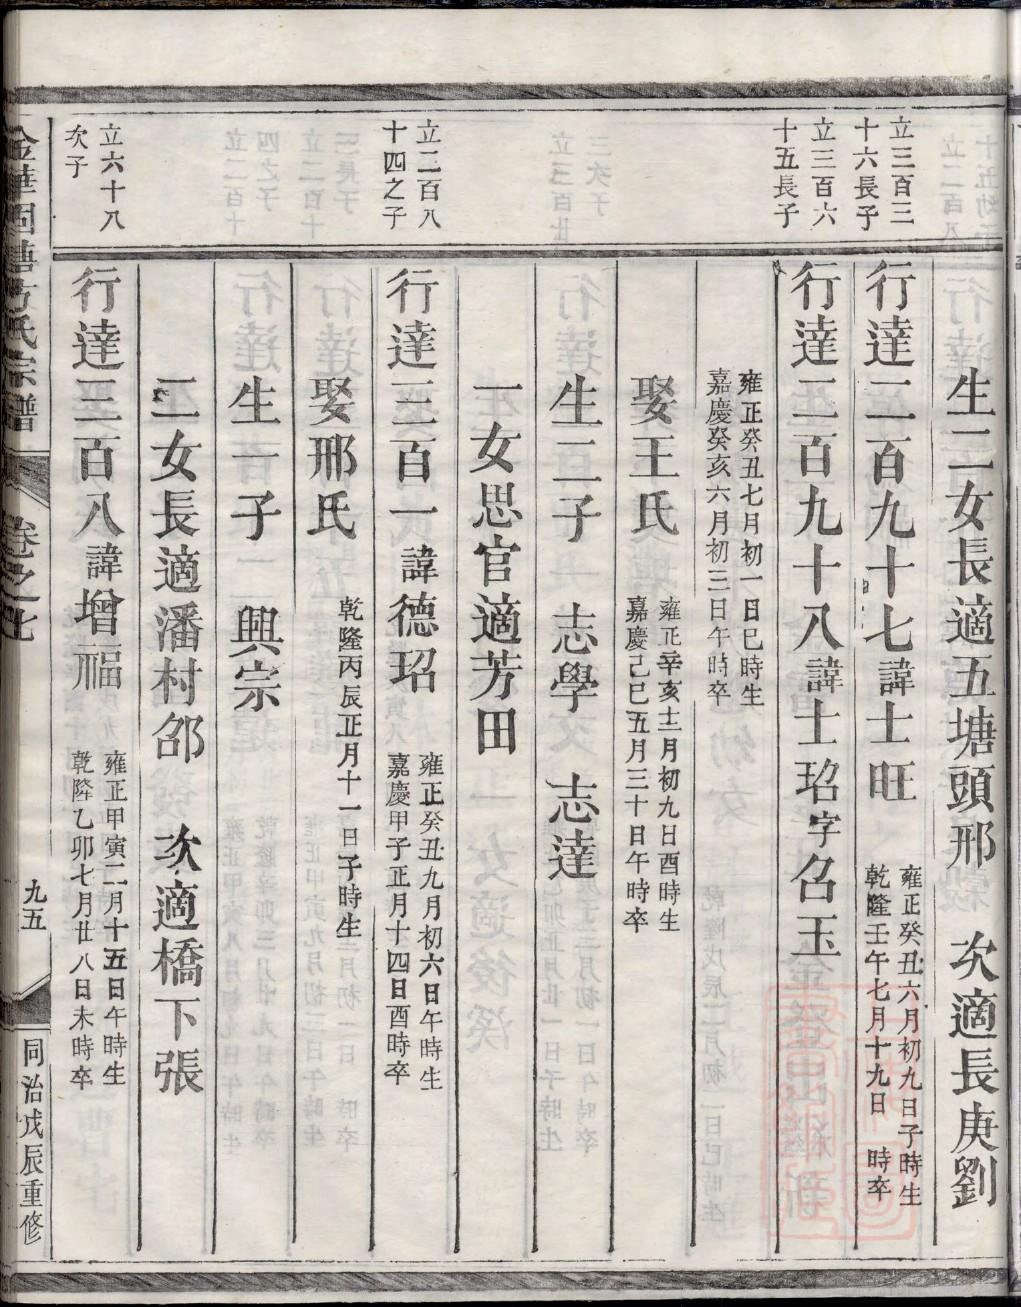 生二女長適五塘頭邢 次適長庚劉
立三百三
十六長子
行達二百九十七諱士旺
雍正癸丑六月初九日子時生
乾隆壬午七月十九日 時卒
立三百六
十五長子
行達二百九十八諱士玿字召玉
雍正癸丑七月初一日巳時生
嘉慶癸亥六月初三日午時卒
娶王氏
雍正辛亥十二月初九日酉時生
嘉慶己巳五月三十日午時卒
生二子 志學 志達
一女思官適芳田
立二百八
十四之子
行達三百一諱德玿
雍正癸丑九月初六日午時生
嘉慶甲子正月十四日酉時卒
娶邢氏
乾隆丙辰正月十一日子時生
生一子 興宗
二女長適潘村邵 次適橋下張
立六十八
次子
行達三百八諱增福
雍正甲寅二月十五日午時生
乾隆乙卯七月廿八日未時卒
金華國塘方氏宗譜
卷之七
九五
同治戊辰重修